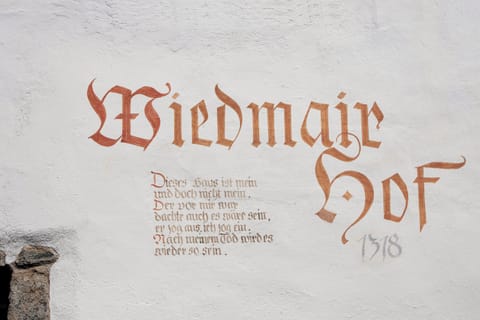 Wiedmair
Hof
1318
Dieses Haus ist mein
und doch nicht mein.
Der vor mir war
dachte auch es wäre sein,
er zog aus, ich zog ein.
Nach meinem Tod wird es
wieder so sein.